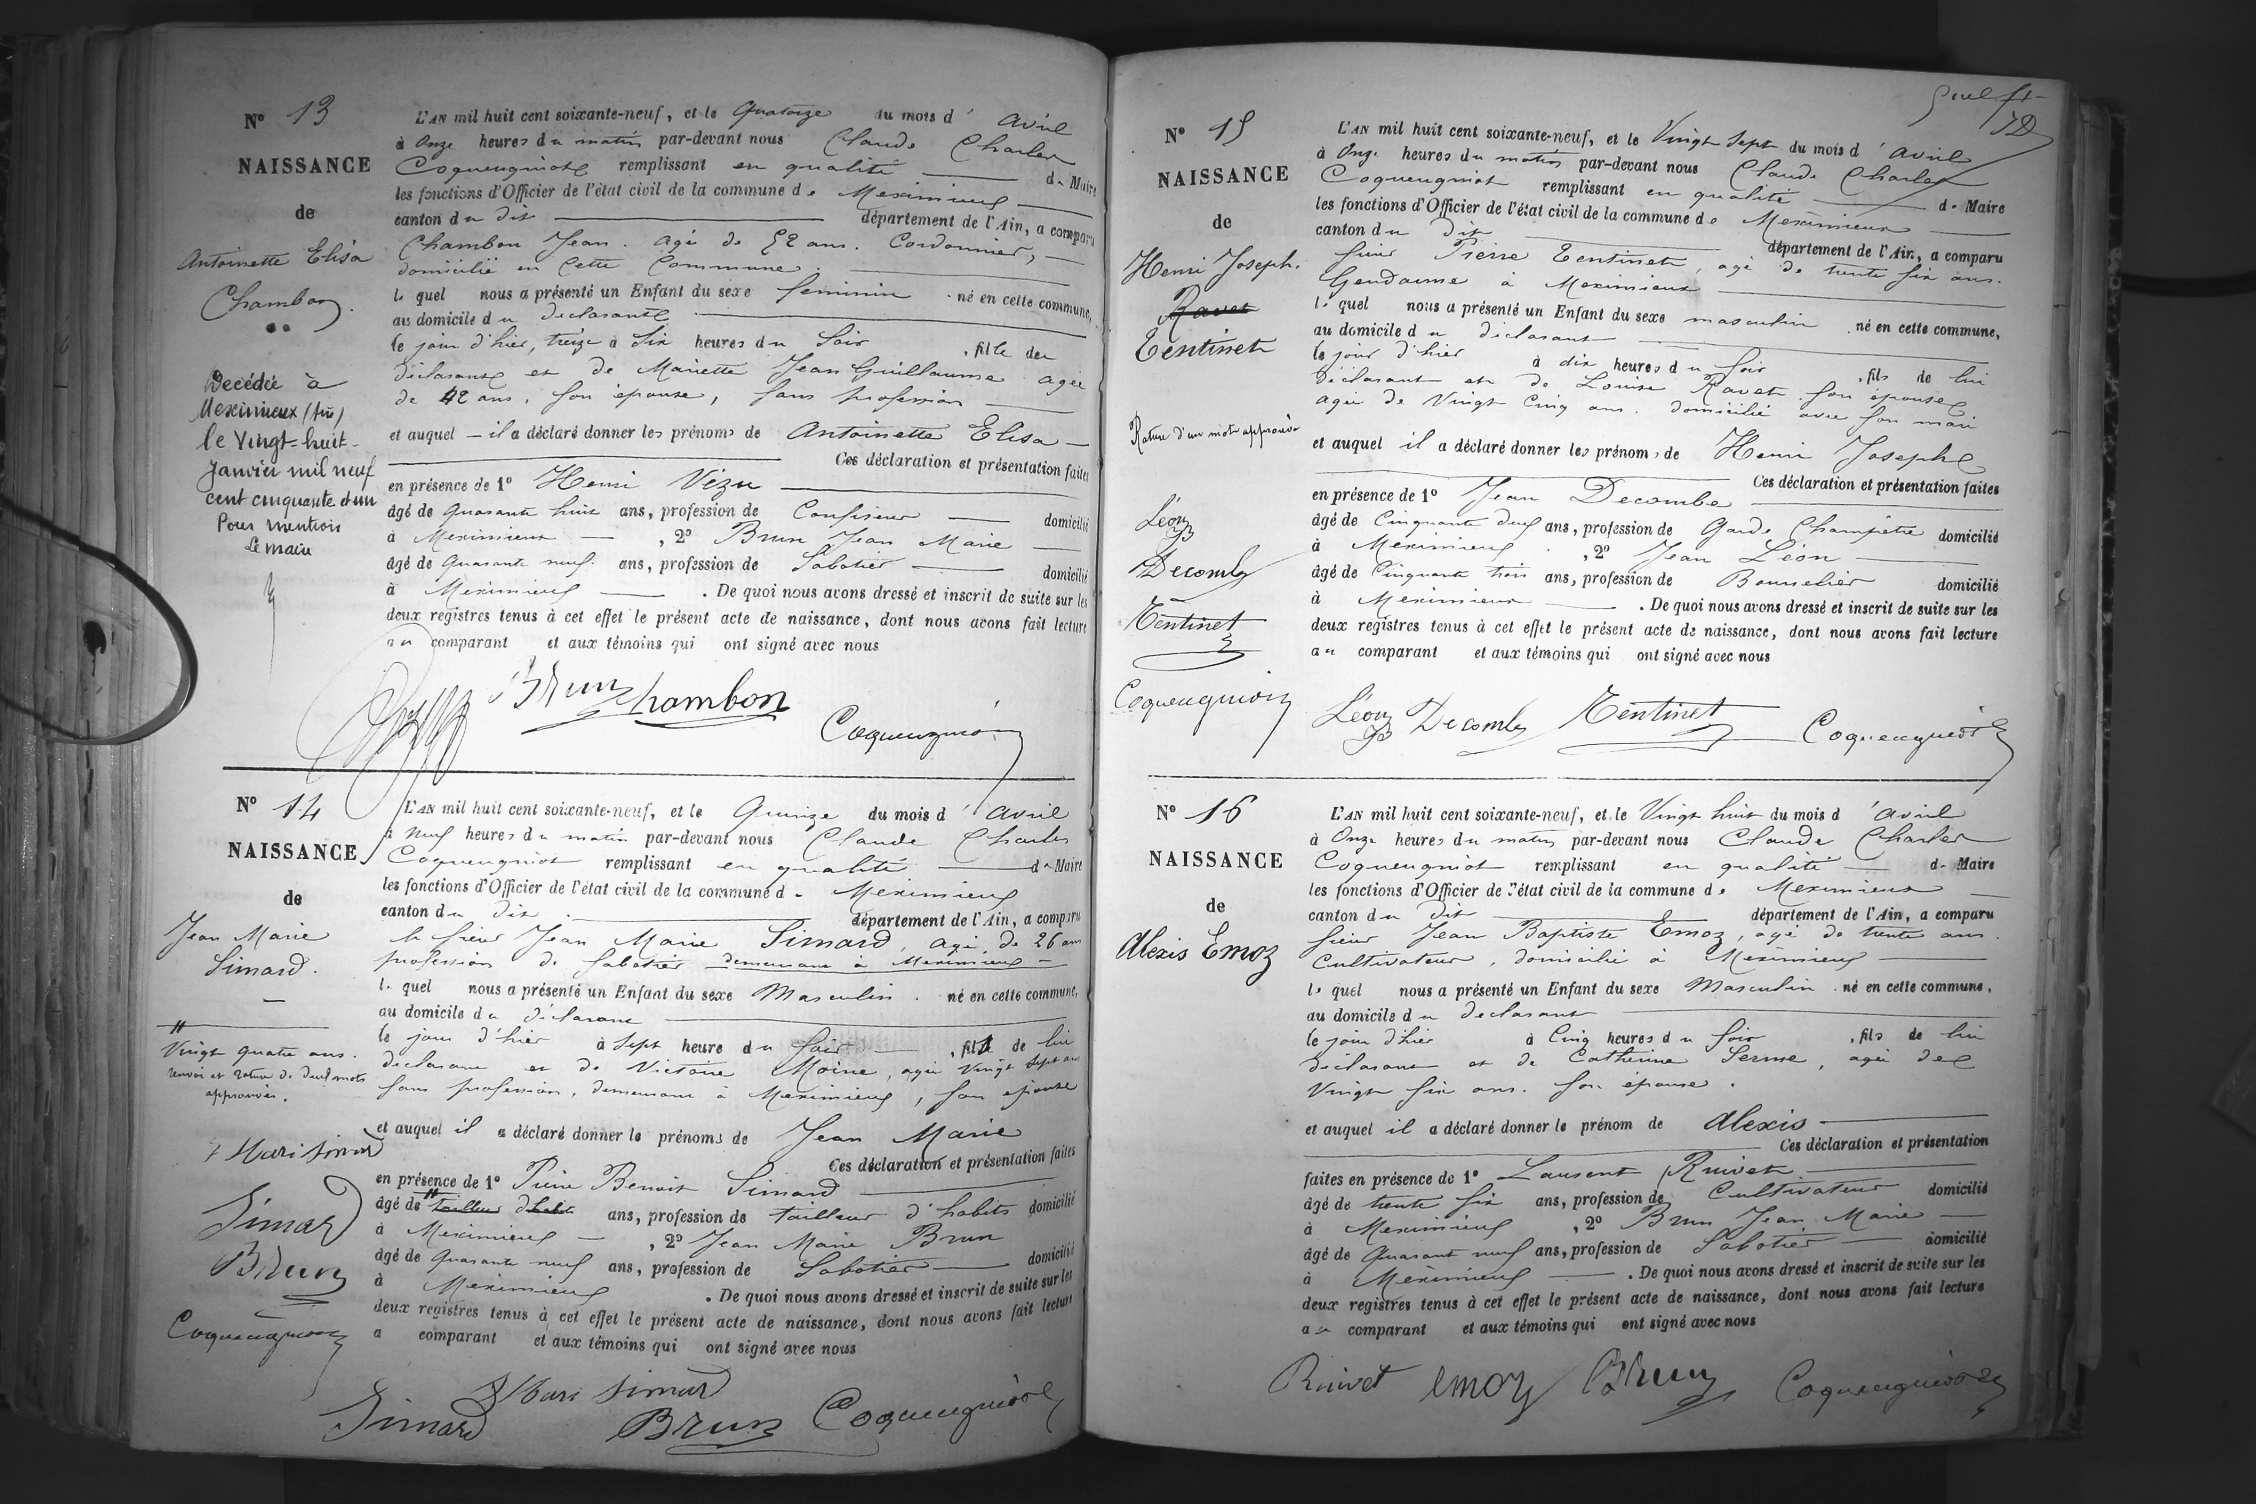 N° 13
NAISSANCE
de
Antoinette Elisa
Chambon.
Decédée à
Meximieux (Ain)
le Vingt-huit
Janvier mil neuf
cent cinquante et un
Pour mention
Le maire
L'AN mil huit cent soixante-neuf, et le Quatorze du mois d' avril
à Onze heures du matin par-devant nous Claude Charles
Coqueugniot remplissant en qualité de Maire
les fonctions d'Officier de l'état civil de la commune de Meximieux
canton du dit département de l'Ain, a comparu
Chambon Jean. agé de 52 ans. Cordonnier,
domicilié en Cette Commune.
le quel nous a présenté un Enfant du sexe feminin né en cette commune,
au domicile du declarant
le jour d'hier, treize à Six heures du Soir, fille du
déclarant et de Mariette Jean Guillaume agée
de 42 ans, son épouse, sans profession
et auquel il a déclaré donner les prénoms de Antoinette Elisa
Ces déclaration et présentation faites
en présence de 1° Henri Vézu
âgé de Quarante huit ans, profession de Confiseur domicilié
à Meximieux, 2° Brun Jean Marie
âgé de Quarante neuf. ans, profession de Sabotier domicilié
à Meximieux. De quoi nous avons dressé et inscrit de suite sur les
deux registres tenus à cet effet le présent acte de naissance, dont nous avons fait lecture
au comparant et aux témoins qui ont signé avec nous
Brun Chambon
Coqueugniot
N° 14
NAISSANCE
de
Jean Marie
Simard.
Vingt quatre ans.
renvoi et rature de deux mots
approuvés.
Mari Simard
Simard
Brun
Coqueugniot
L'AN mil huit cent soixante-neuf, et le Quinze du mois d' avril
à Neuf heures du matin par-devant nous Claude Charles
Coqueugniot remplissant en qualité de Maire
les fonctions d'Officier de l'état civil de la commune de Meximieux
canton du dit département de l'Ain, a comparu
le sieur Jean Marie Simard, agé de 26 ans
profession de sabotier demeurant à Meximieux
le quel nous a présenté un Enfant du sexe Masculin. né en cette commune,
au domicile du déclarant
le jour d'hier à Sept heure du soir, fils de lui
declarant et de Victoire Moine, agée Vingt Sept ans
sans profession, demeurant à Meximieux, son épouse
et auquel il a déclaré donner le prénoms de Jean Marie
Ces déclaration et présentation faites
en présence de 1° Pierre Benoit Simard
âgé de tailleur d'habits ans, profession de tailleur d'habits domicilié
à Meximieux, 2° Jean Marie Brun
âgé de Quarante neuf ans, profession de Sabotier domicilié
à Meximieux. De quoi nous avons dressé et inscrit de suite sur les
deux registres tenus à cet effet le présent acte de naissance, dont nous avons fait lecture
a comparant et aux témoins qui ont signé avec nous
Mari Simard
Simard Brun Coqueugniot
N° 15
NAISSANCE
de
Henri Joseph.
Ravet
Tentinet
Rature d'un mot approuvée
Léon
Decombe
Tentinet
Coqueugniot
L'AN mil huit cent soixante-neuf, et le Vingt Sept du mois d' avril
à Onze heures du matin par-devant nous Claude Charles
Coqueugniot remplissant en qualité de Maire
les fonctions d'Officier de l'état civil de la commune de Meximieux
canton du dit département de l'Ain, a comparu
sieur Pierre Tentinet, agé de trente six ans.
Gendarme à Meximieux
le quel nous a présenté un Enfant du sexe masculin né en cette commune,
au domicile du déclarant
le jour d'hier à dix heures du soir, fils de lui
déclarant et de Louise Ravet son épouse
agée de Vingt Cinq ans. domicilié avec son mari
et auquel il a déclaré donner les prénoms de Henri Joseph
Ces déclaration et présentation faites
en présence de 1° Jean Decombe
âgé de Cinquante deux ans, profession de Garde Champêtre domicilié
à Meximieux, 2° Jean Léon
âgé de Cinquante trois ans, profession de Bourrelier domicilié
à Meximieux. De quoi nous avons dressé et inscrit de suite sur les
deux registres tenus à cet effet le présent acte de naissance, dont nous avons fait lecture
au comparant et aux témoins qui ont signé avec nous
Léon Decombe Tentinet Coqueugniot
N° 16
NAISSANCE
de
Alexis Emoz
L'AN mil huit cent soixante-neuf, et le Vingt huit du mois d' avril
à Onze heures du matin par-devant nous Claude Charles
Coqueugniot remplissant en qualité de Maire
les fonctions d'Officier de l'état civil de la commune de Meximieux
canton du dit département de l'Ain, a comparu
sieur Jean Baptiste Emoz, agé de trente ans.
Cultivateur, domicilié à Meximieux
le quel nous a présenté un Enfant du sexe Masculin. né en cette commune,
au domicile du declarant
le jour d'hier à Cinq heures du soir, fils de lui
déclarant et de Catherine Serme, agée de
Vingt six ans. son épouse.
et auquel il a déclaré donner le prénom de Alexis
Ces déclaration et présentation
faites en présence de 1° Laurent Ruivet
âgé de trente six ans, profession de Cultivateur domicilié
à Meximieux, 2° Brun Jean Marie
âgé de Quarant neuf ans, profession de Sabotier domicilié
à Meximieux. De quoi nous avons dressé et inscrit de suite sur les
deux registres tenus à cet effet le présent acte de naissance, dont nous avons fait lecture
au comparant et aux témoins qui ont signé avec nous
Ruivet Emoz Brun Coqueugniot